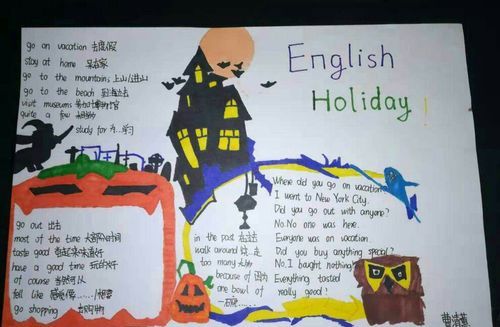 English
Holiday!
go on vacation 去度假
stay at home 呆在家
go to the mountains 上山/进山
go to the beach 到海边去
visit museums 参加博物馆
quite a few 相当多
study for 为…学习
go out 出去
most of the time 大部分时间
taste good 尝起来味道好
have a good time 玩的好
of course 当然可以
fell like 感觉像……/想要
go shopping 去购物
in the past 在过去
walk around 绕…走
too many 太多
because of 因为
one bowl of
一碗……
Where did you go on vacation
I went to New York City.
Did you go out with anyone?
No.No one was here.
Everyone was on vacation.
Did you buy anything special?
No.I baught nothing
Everything tasted
really good!